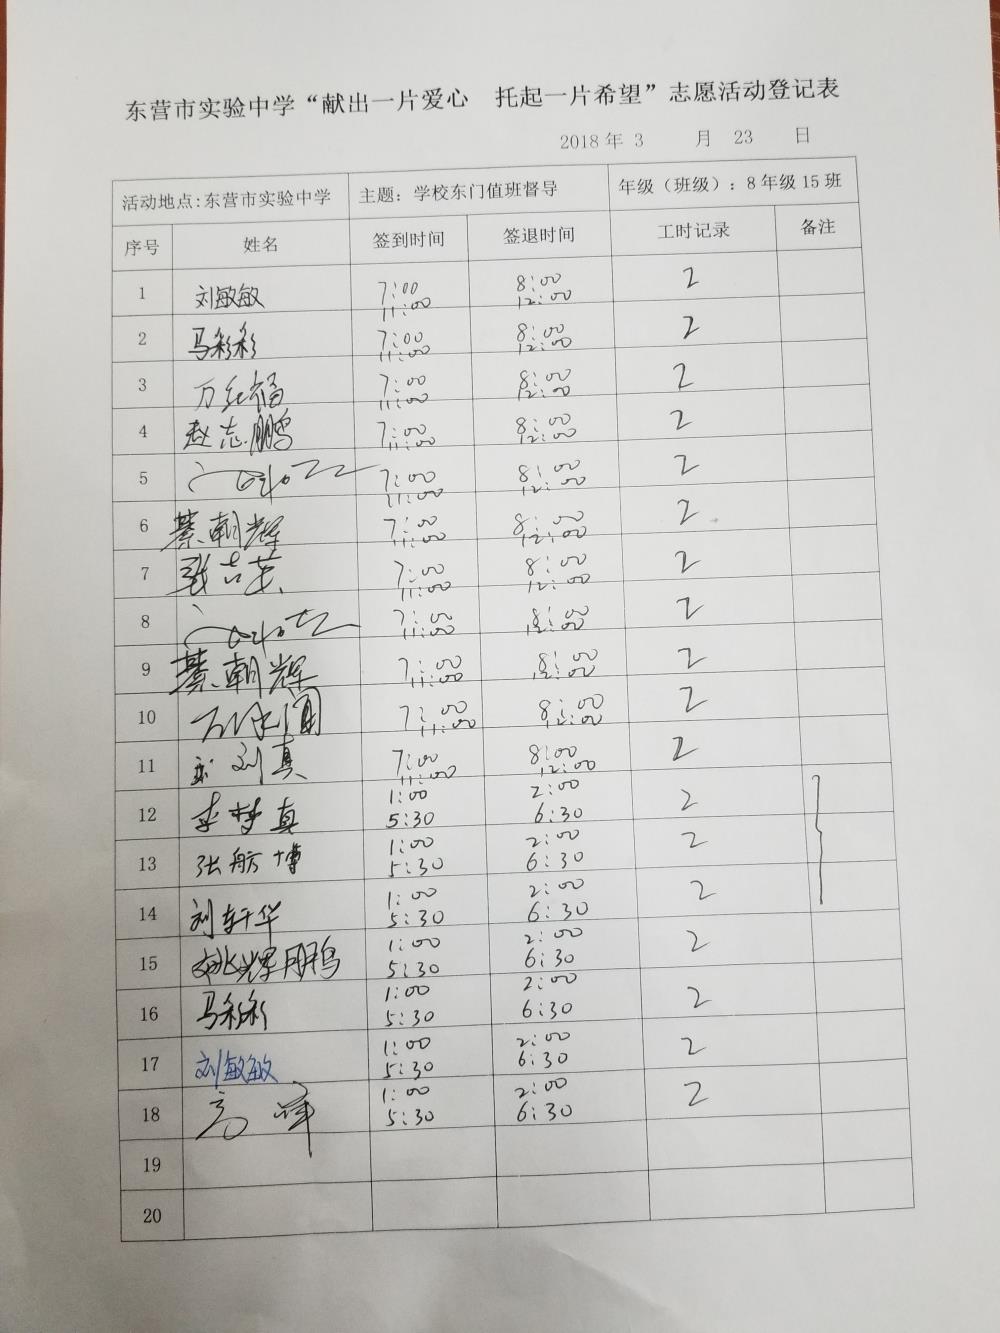 东营市实验中学“献出一片爱心 托起一片希望”志愿活动登记表
2018 年 3 月 23 日
活动地点:东营市实验中学 主题：学校东门值班督导 年级（班级）：8 年级 15 班
序号 姓名 签到时间 签退时间 工时记录 备注
1 刘敏敏 7:00 8:00 2
11:00 12:00
2 马彩彩 7:00 8:00 2
11:00 12:00
3 万红福 7:00 8:00 2
11:00 12:00
4 赵志鹏 7:00 8:00 2
11:00 12:00
5 7:00 8:00 2
11:00 12:00
6 綦朝辉 7:00 8:00 2
11:00 12:00
7 张吉芸 7:00 8:00 2
11:00 12:00
8 7:00 8:00 2
11:00 12:00
9 綦朝辉 7:00 8:00 2
11:00 12:00
10 7:00 8:00 2
11:00 12:00
11 刘真 7:00 8:00 2
11:00 12:00
12 李梦真 1:00 2:00 2
5:30 6:30
13 张舫博 1:00 2:00 2
5:30 6:30
14 刘轩华 1:00 2:00 2
5:30 6:30
15 姚辉鹏 1:00 2:00 2
5:30 6:30
16 马彩彩 1:00 2:00 2
5:30 6:30
17 刘敏敏 1:00 2:00 2
5:30 6:30
18 高峰 1:00 2:00 2
5:30 6:30
19
20